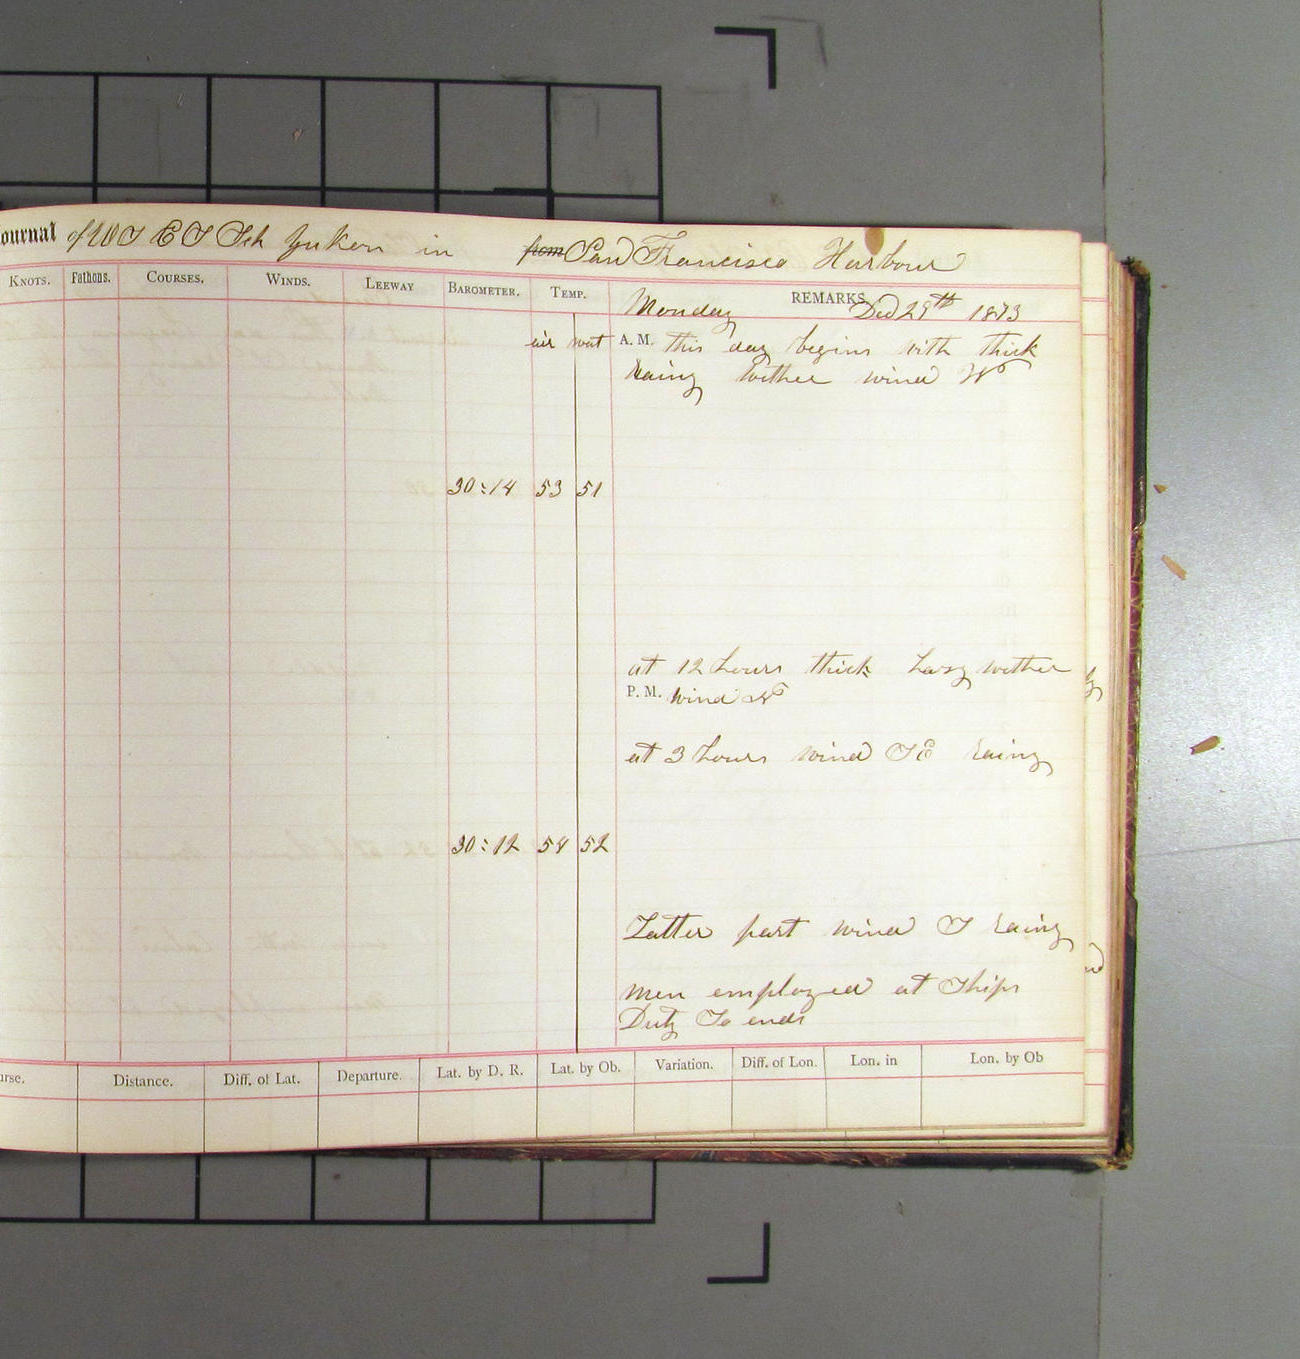 ournal of U S C S Sch Yukon in from San Francisco Harbour
KNOTS. Fathoms. COURSES. WINDS. LEEWAY BAROMETER. TEMP. REMARKS.
Monday Ded 29th 1873
air wat A. M. this day begins with thick
Rainy wether wind W
30:14 53 51
at 12 hours thick hazy wether
P. M. wind W
at 3 hours wind SE rainy
30:12 54 52
Latter part wind S rainy
men employed at Ships
Duty So ends
urse. Distance. Diff. of Lat. Departure. Lat. by D. R. Lat. by Ob. Variation. Diff. of Lon. Lon. in Lon. by Ob